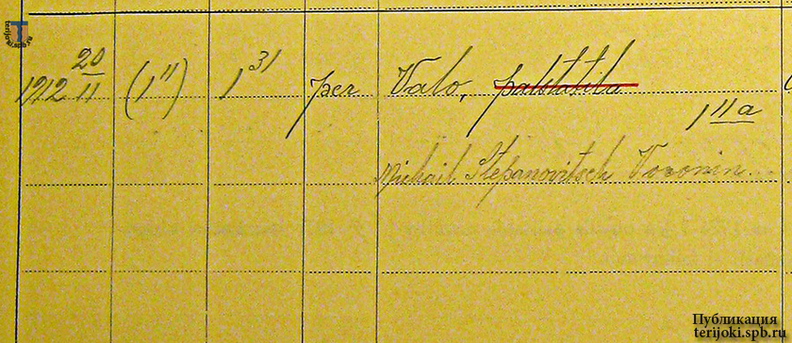 1912 20/11 (1") 1 31 per Valo, palstatila
1 11a
Michail Stepanovitsch Voronin
Публикация
terijoki.spb.ru